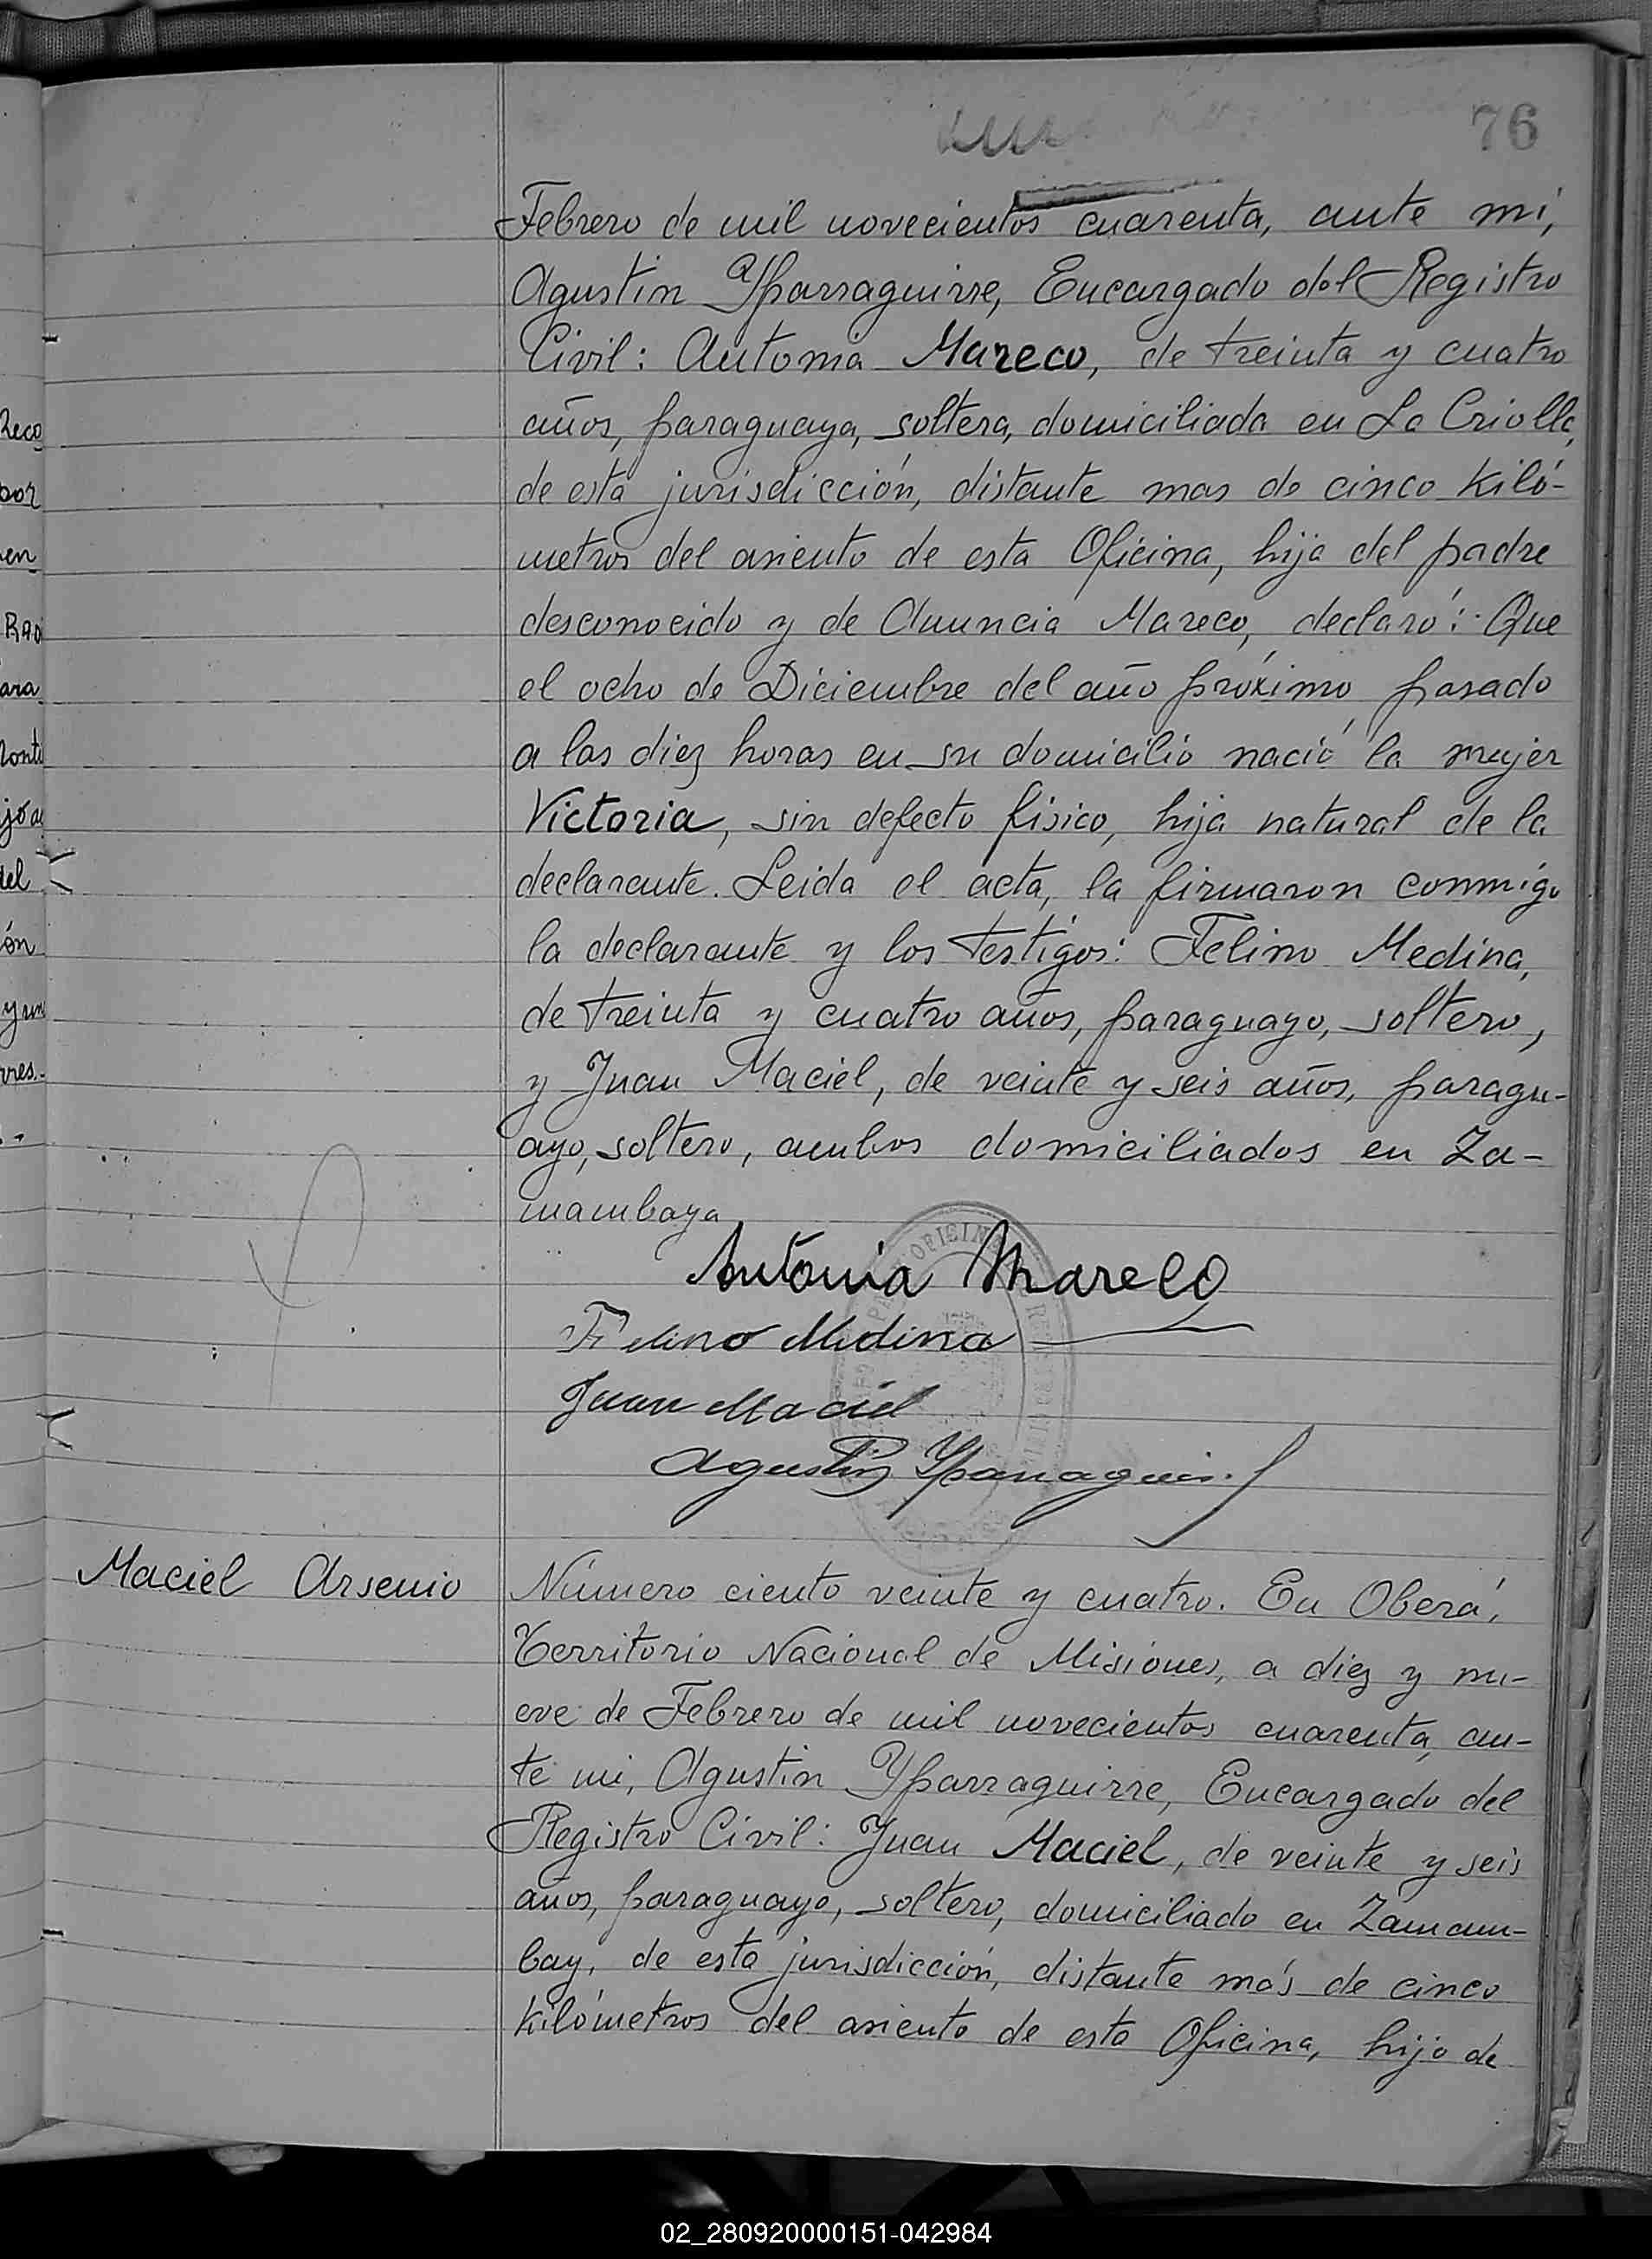 76
Febrero de mil novecientos cuarenta, ante mí,
Agustin Yparraguirre, Encargado del Registro
Civil: Antonia Mareco, de treinta y cuatro
años, paraguaya, soltera, domiciliada en La Criolla,
de esta jurisdicción, distante mas de cinco kiló-
metros del asiento de esta Oficina, hija del padre
desconocido y de Anuncia Mareco, declaró: Que
el ocho de Diciembre del año próximo pasado
a las diez horas en su domicilio nació la mujer
Victoria, sin defecto físico, hija natural de la
declarante. Leida el acta, la firmaron conmigo
la declarante y los testigos: Felino Medina,
de treinta y cuatro años, paraguayo, soltero,
y Juan Maciel, de veinte y seis años, paragu-
ayo, soltero, ambos domiciliados en Za-
mambaya
Antonia Mareco
Felino Medina
Juan Maciel
Agustin Yparraguirre
Maciel Arsenio
Número ciento veinte y cuatro. En Oberá,
Territorio Nacional de Misiones, a diez y nu-
eve de Febrero de mil novecientos cuarenta, an-
te mi, Agustin Yparraguirre, Encargado del
Registro Civil: Juan Maciel, de veinte y seis
años, paraguayo, soltero, domiciliado en Zamam-
bay, de esta jurisdicción, distante más de cinco
kilómetros del asiento de esta Oficina, hijo de
02_280920000151-042984